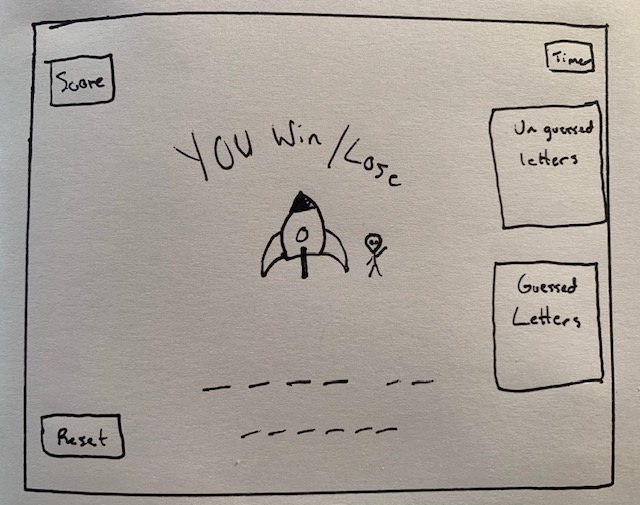 Score
Timer
YOU Win / Lose
Un guessed
letters
Guessed
Letters
Reset